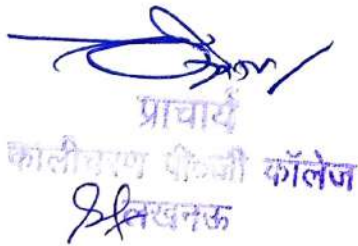 प्राचार्य
कालीचरण पी०जी कॉलेज
लखनऊ